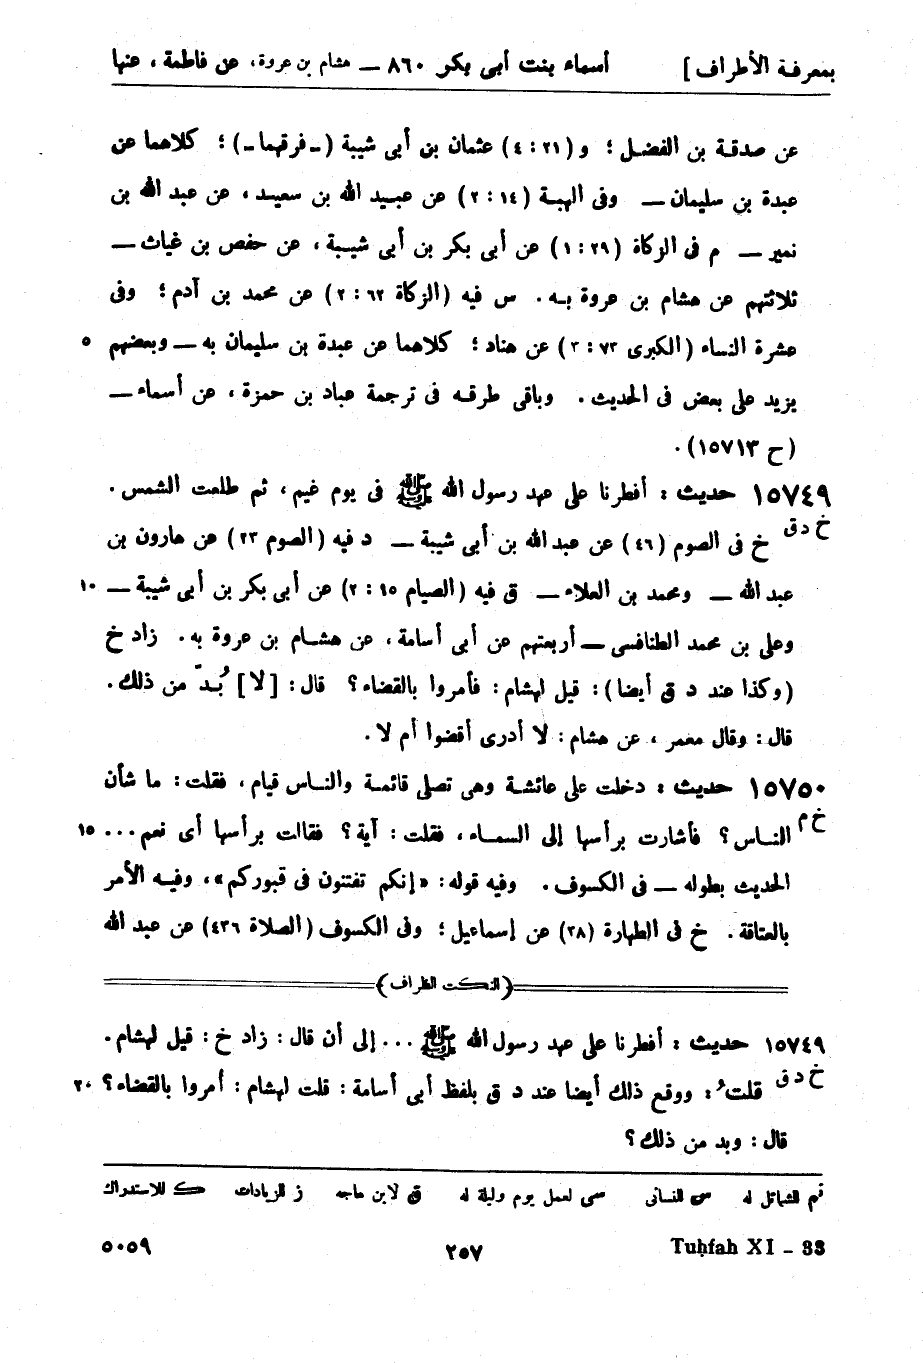 بمعرفة الأطراف ] أسماء بنت أبى بكر ٨٦٠ — هشام بن عروة، عن فاطمة، عنها
عن صدقة بن الفضل؛ و (٢١ : ٤) عثمان بن أبى شيبة (ـ فرقهما ـ)؛ كلاهما عن
عبدة بن سليمان — وفى الهبة (١٤ : ٢) عن عبيد الله بن سعيد، عن عبد الله بن
نمير — م فى الزكاة (٢٩ : ١) عن أبى بكر بن أبى شيبة، عن حفص بن غياث —
ثلاثتهم عن هشام بن عروة به. س فيه (الزكاة ٦٢ : ٢) عن محمد بن آدم؛ وفى
عشرة النساء (الكبرى ٧٣ : ٣) عن هناد؛ كلاهما عن عبدة بن سليمان به — وبعضهم ٥
يزيد على بعض فى الحديث. وباقى طرقه فى ترجمة عباد بن حمزة، عن أسماء —
(ح ١٥٧١٣).
١٥٧٤٩ حديث : أفطرنا على عهد رسول الله ﷺ فى يوم غيم، ثم طلعت الشمس.
خ د ق خ فى الصوم (٤٦) عن عبد الله بن أبى شيبة — د فيه (الصوم ٢٣) عن هارون بن
عبد الله — ومحمد بن العلاء — ق فيه (الصيام ١٥ : ٢) عن أبى بكر بن أبى شيبة — ١٠
وعلى بن محمد الطنافسى — أربعتهم عن أبى أسامة، عن هشام بن عروة به. زاد خ
(وكذا عند د ق أيضا): قيل لهشام: فأمروا بالقضاء؟ قال: [لا] بُدّ من ذلك.
قال: وقال معمر، عن هشام: لا أدرى أقضوا أم لا.
١٥٧٥٠ حديث : دخلت على عائشة وهى تصلى قائمة والناس قيام، فقلت: ما شأن
خ م الناس؟ فأشارت برأسها إلى السماء، فقلت: آية؟ فقالت برأسها أى نعم... ١٥
الحديث بطوله — فى الكسوف. وفيه قوله: «إنكم تفتنون فى قبوركم»، وفيه الأمر
بالعتاقة. خ فى الطهارة (٣٨) عن إسماعيل؛ وفى الكسوف (الصلاة ٤٣٦) عن عبد الله
(النكت الظراف)
١٥٧٤٩ حديث : أفطرنا على عهد رسول الله ﷺ ... إلى أن قال: زاد خ: قيل لهشام.
خ د ق قلتُ: ووقع ذلك أيضا عند د ق بلفظ أبى أسامة: قلت لهشام: أمروا بالقضاء؟ ٢٠
قال: وبد من ذلك؟
تم للشمائل له س للنسائى سى لعمل يوم وليلة له ق لابن ماجه ز للزيادات ك للاستدراك
Tuḥfah XI - 33 ٢٥٧ ٥٠٥٩